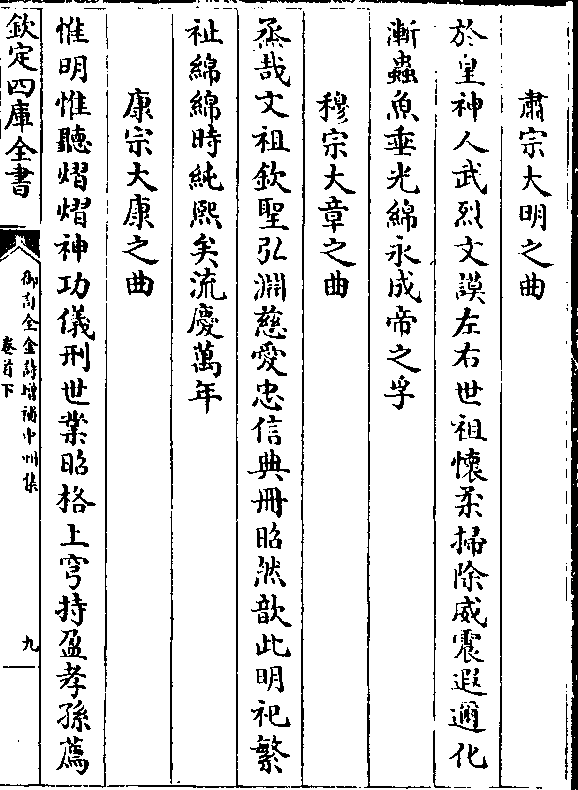 肅宗大明之曲
於皇神人武烈文謨左右世祖懷柔掃除威震遐邇化
漸蟲魚垂光綿永成帝之孚
穆宗大章之曲
烝哉文祖欽聖弘淵慈愛忠信典冊昭然歆此明祀繁
祉綿綿時純熙矣流慶萬年
康宗大康之曲
惟明惟聽熠熠神功儀刑世業昭格上穹持盈孝孫薦
欽定四庫全書
御訂全金詩增補中州集
卷首下
九